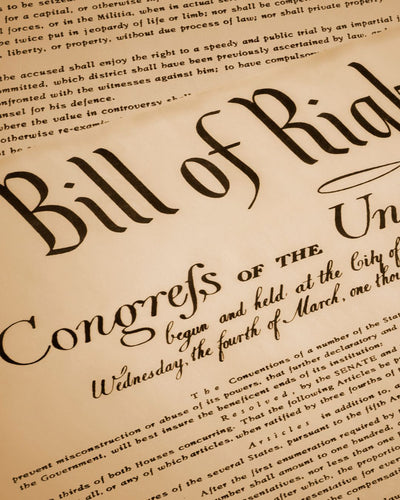 to be seized.
for a capital, or otherwise in
l forces, or in the Militia, when in actual ser
be twice put in jeopardy of life or limb; nor shall be compel
, liberty, or property, without due process of law; nor shall private property
the accused shall enjoy the right to a speedy and public trial by an impartial j
mmitted, which district shall have been previously ascertained by law, and
onfronted with the witnesses against him; to have compulsor
nsel for his defence.
where the value in controversy shall
otherwise re-exami
Bill of Righ
Congreſs OF THE Un
begun and held at the City of
Wednesday, the fourth of March, one thou
The Conventions of a number of the Stat
prevent misconstruction or abuse of its powers, that further declaratory and
the Government, will best insure the beneficent ends of its institution;
Resolved, by the SENATE and
thirds of both Houses concurring. That the following Articles be p
all, or any of which articles, when ratified by three fourths of
Articles in addition to,
ures of the several States, pursuant to the fifth Art
After the first enumeration required by
amount to one hundred,
nor less than
the proportion